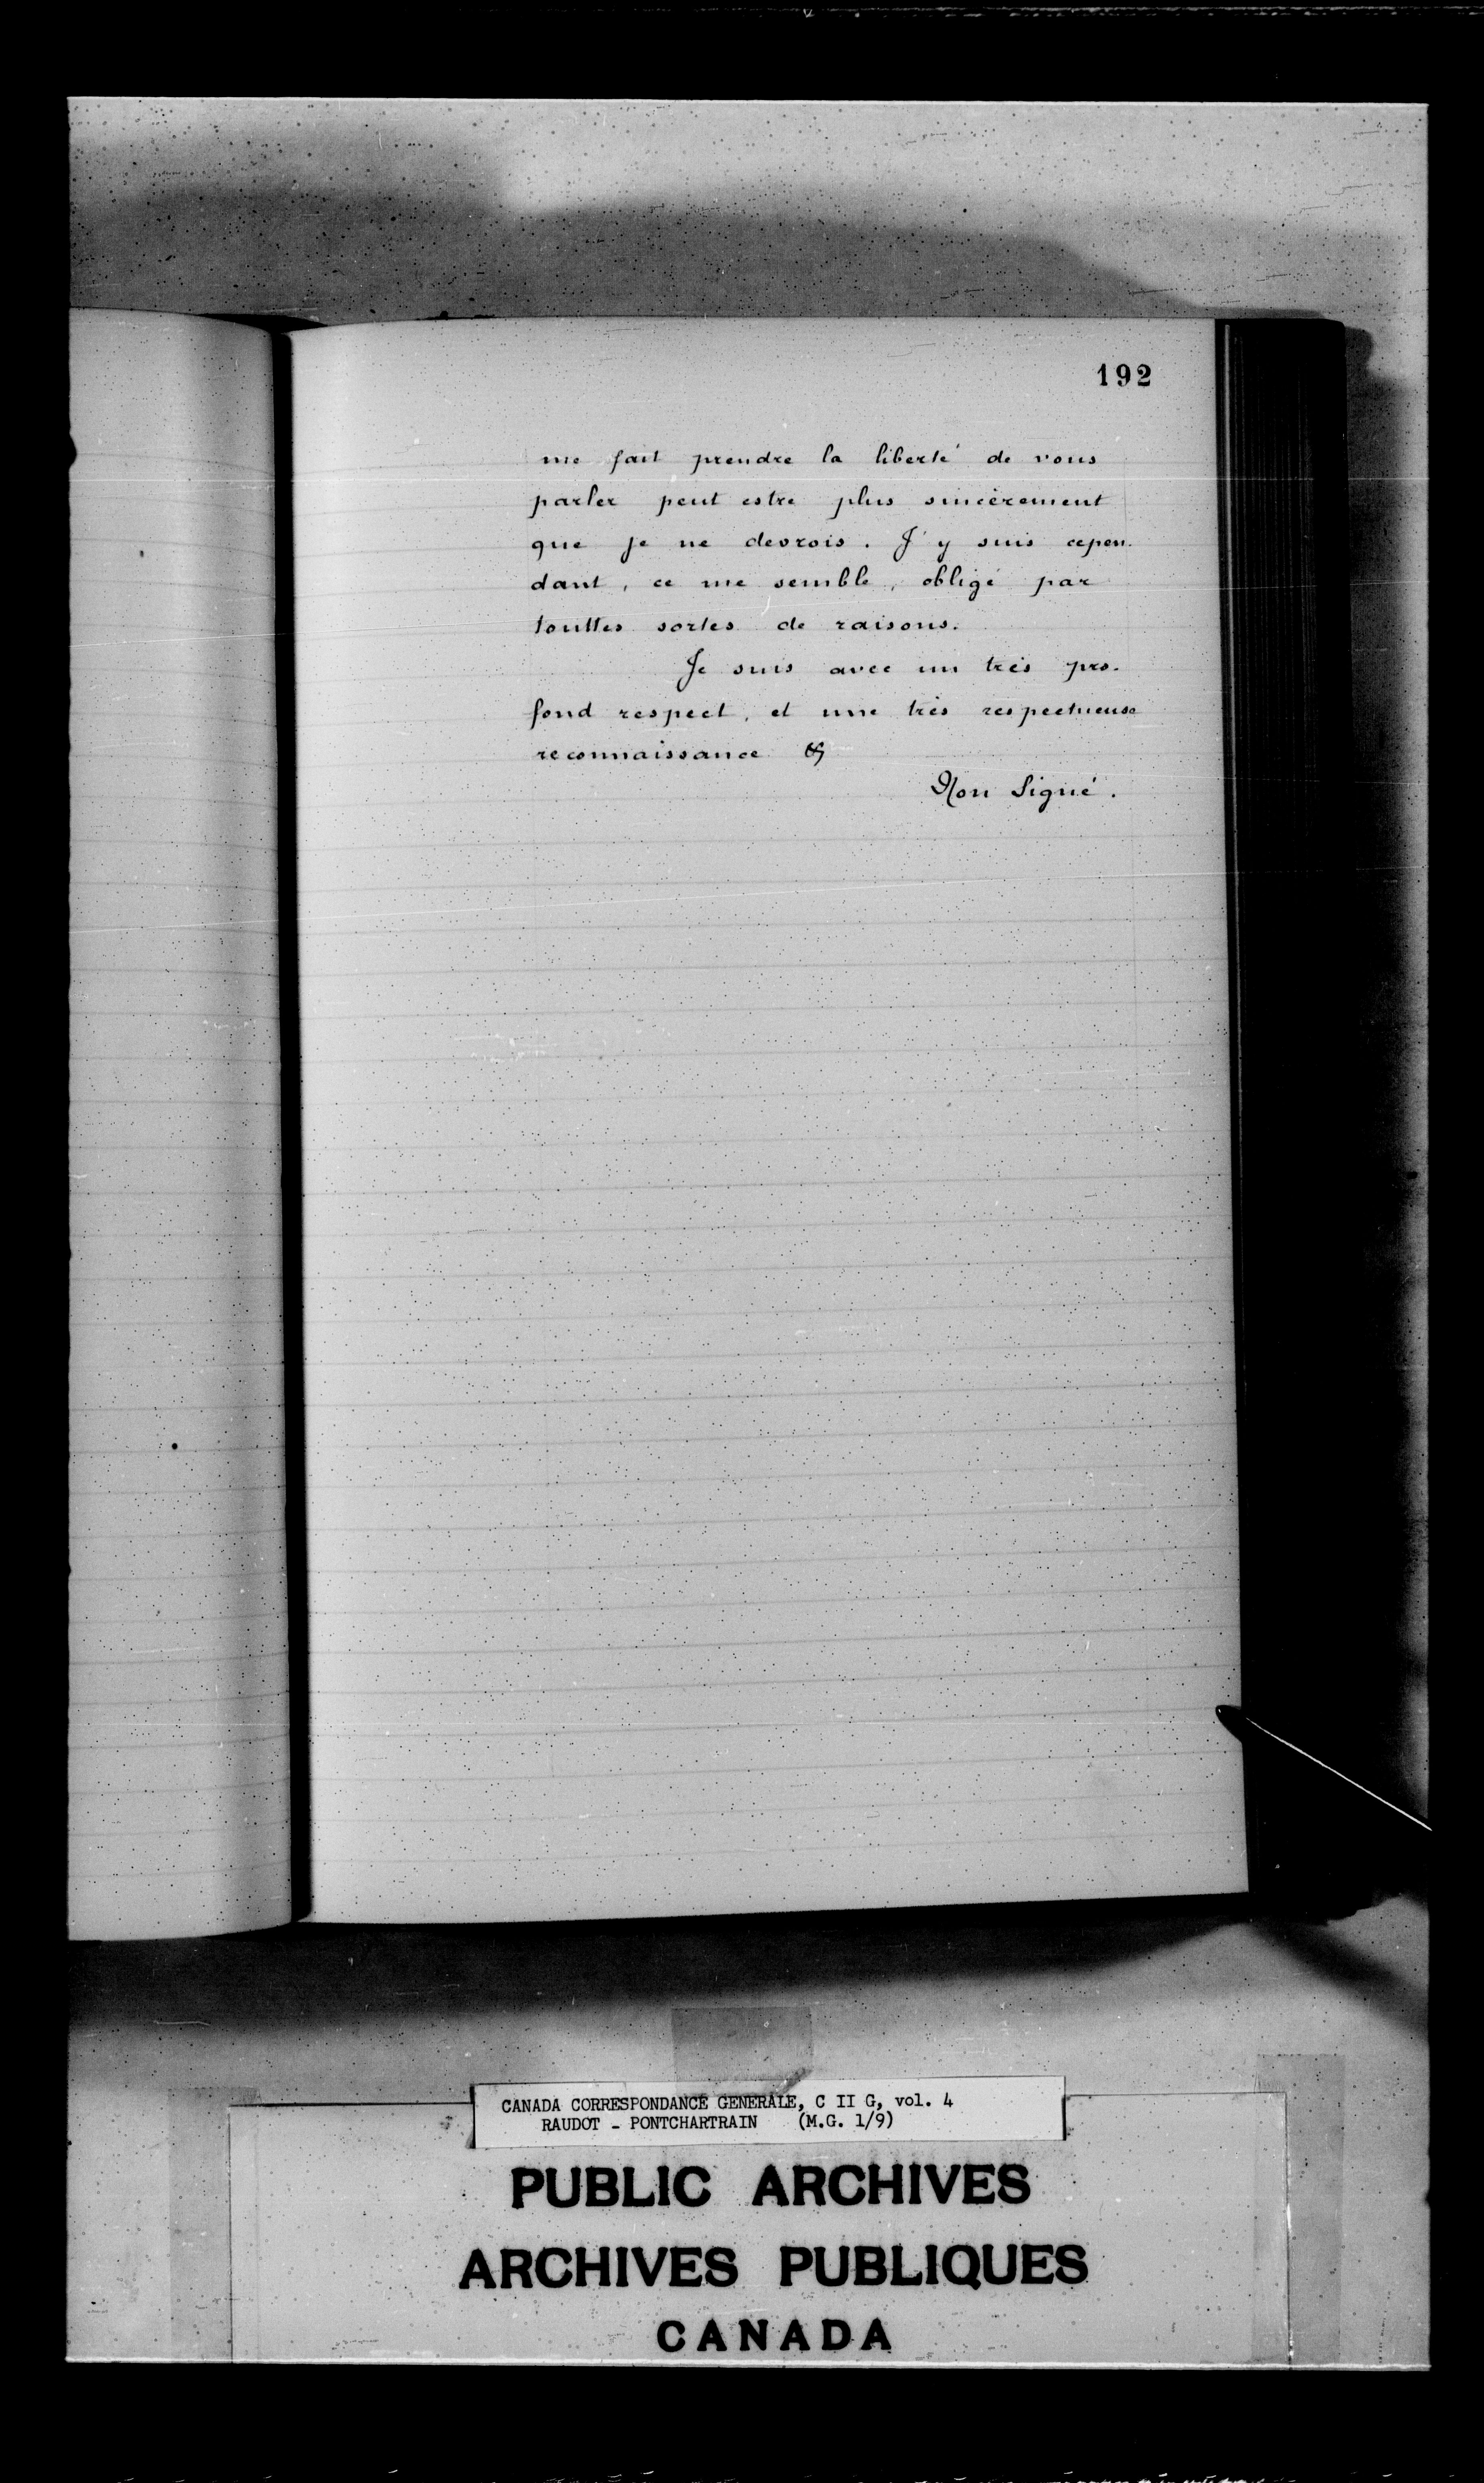 192
me fait prendre la liberté de vous
parler peut estre plus sincèrement
que je ne devrois. J'y suis cepen-
dant, ce me semble, obligé par
touttes sortes de raisons.
Je suis avec un très pro-
fond respect, et une très respectueuse
reconnaissance &
Non Signé.
CANADA CORRESPONDANCE GENERALE, C II G, vol. 4
RAUDOT - PONTCHARTRAIN (M.G. 1/9)
PUBLIC ARCHIVES
ARCHIVES PUBLIQUES
CANADA